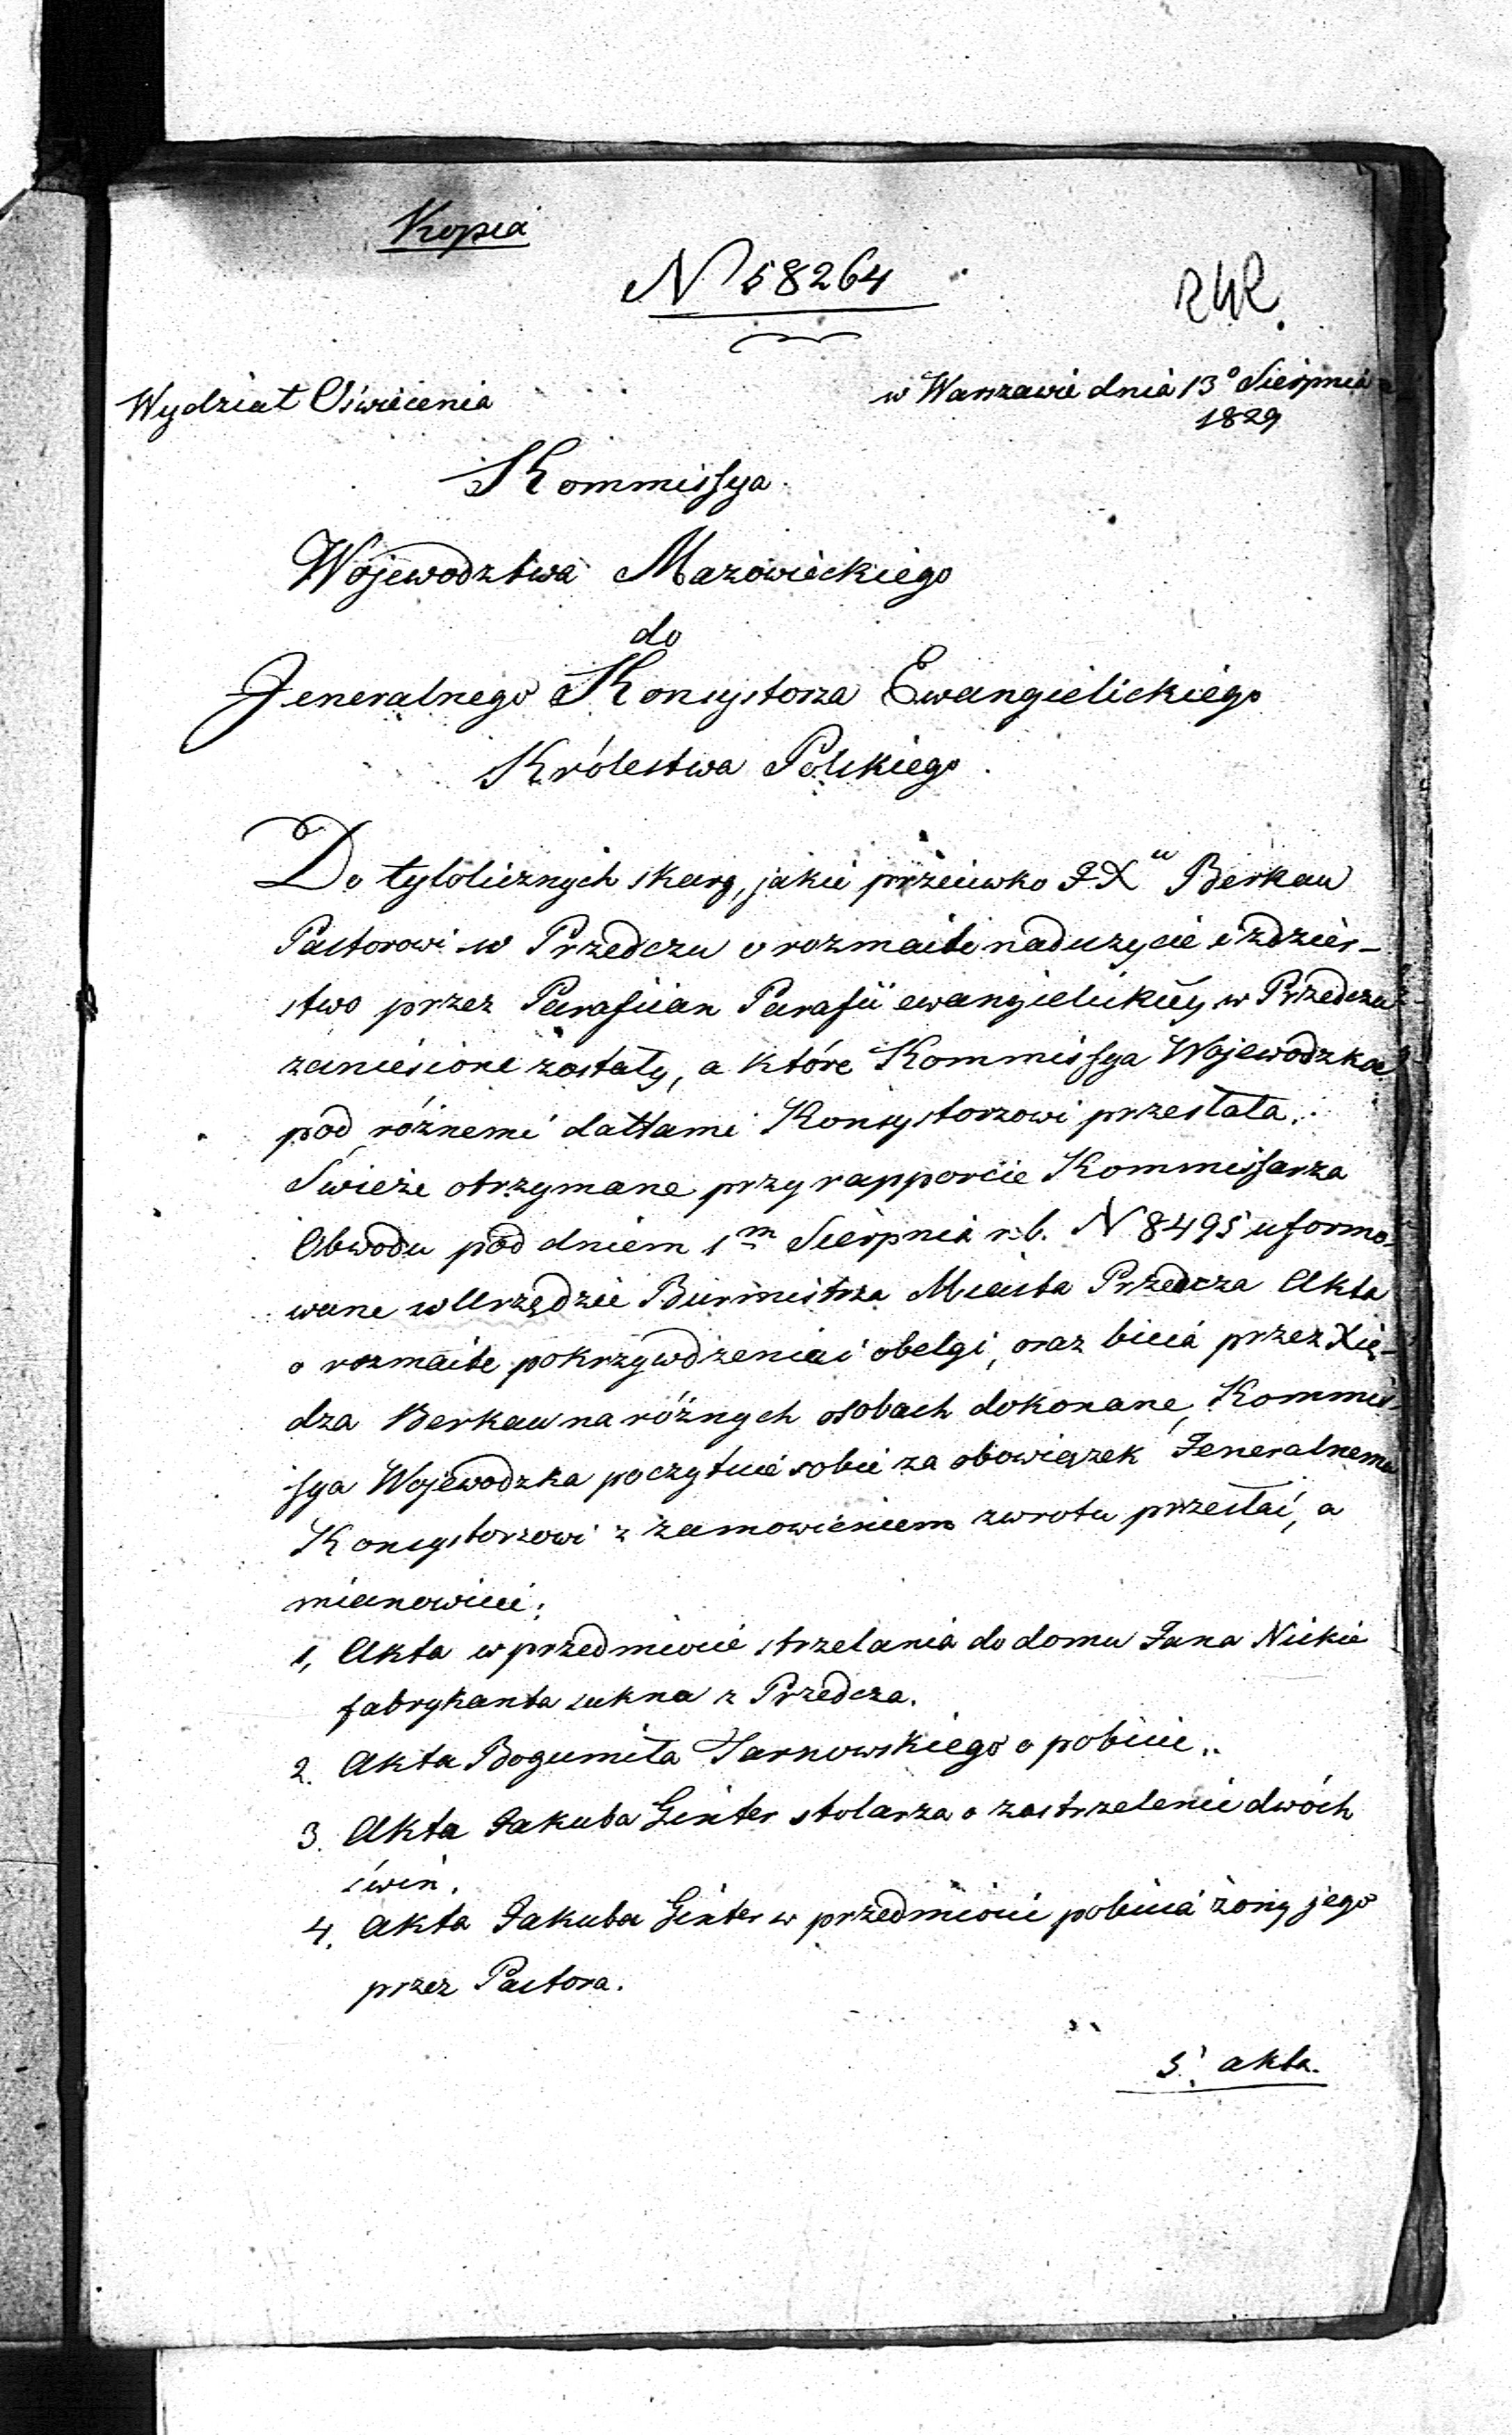 Kopia
N 58264
242.
Wydział Oświecenia
w Warszawie dnia 13° Sierpnia
1829
Kommissya
Województwa Mazowieckiego
do
Jeneralnego Konsystorza Ewangielickiego
Królestwa Polskiego.
Do tylolicznych skarg, jakie przeciwko JX Berkau
Pastorowi w Przedczu o rozmaite nadużycie i zdzier-
stwo przez Parafiian Parafii ewangielickiéy w Przedczu
zaniesione zostały, a które Kommissya Wojewodzka
pod różnemi dattami Konsystorzowi przesłała.
Świeże otrzymane przy rapporcie Kommissarza
Obwodu pod dniem 1m Sierpnia r.b. N 8495 uformo-
wane w Urzędzie Burmistrza Miasta Przedcza Akta
o rozmaite pokrzywdzenia i obelgi, oraz bicia przez Xię-
dza Berkau na różnych osobach dokonane, Kommis-
sya Wojewodzka poczytuie sobie za obowiązek Jeneralnemu
Konsystorzowi z zamowieniem zwrotu przesłać, a
mianowicie:
1, Akta w przedmiocie strzelania do domu Jana Nickie
fabrykanta sukna z Przedcza.
2. Akta Bogumiła Tarnowskiego o pobicie.
3. Akta Jakuba Ginter stolarza o zastrzelenie dwóch
świń.
4. Akta Jakuba Ginter w przedmiocie pobicia żony jego
przez Pastora.
5. akta.